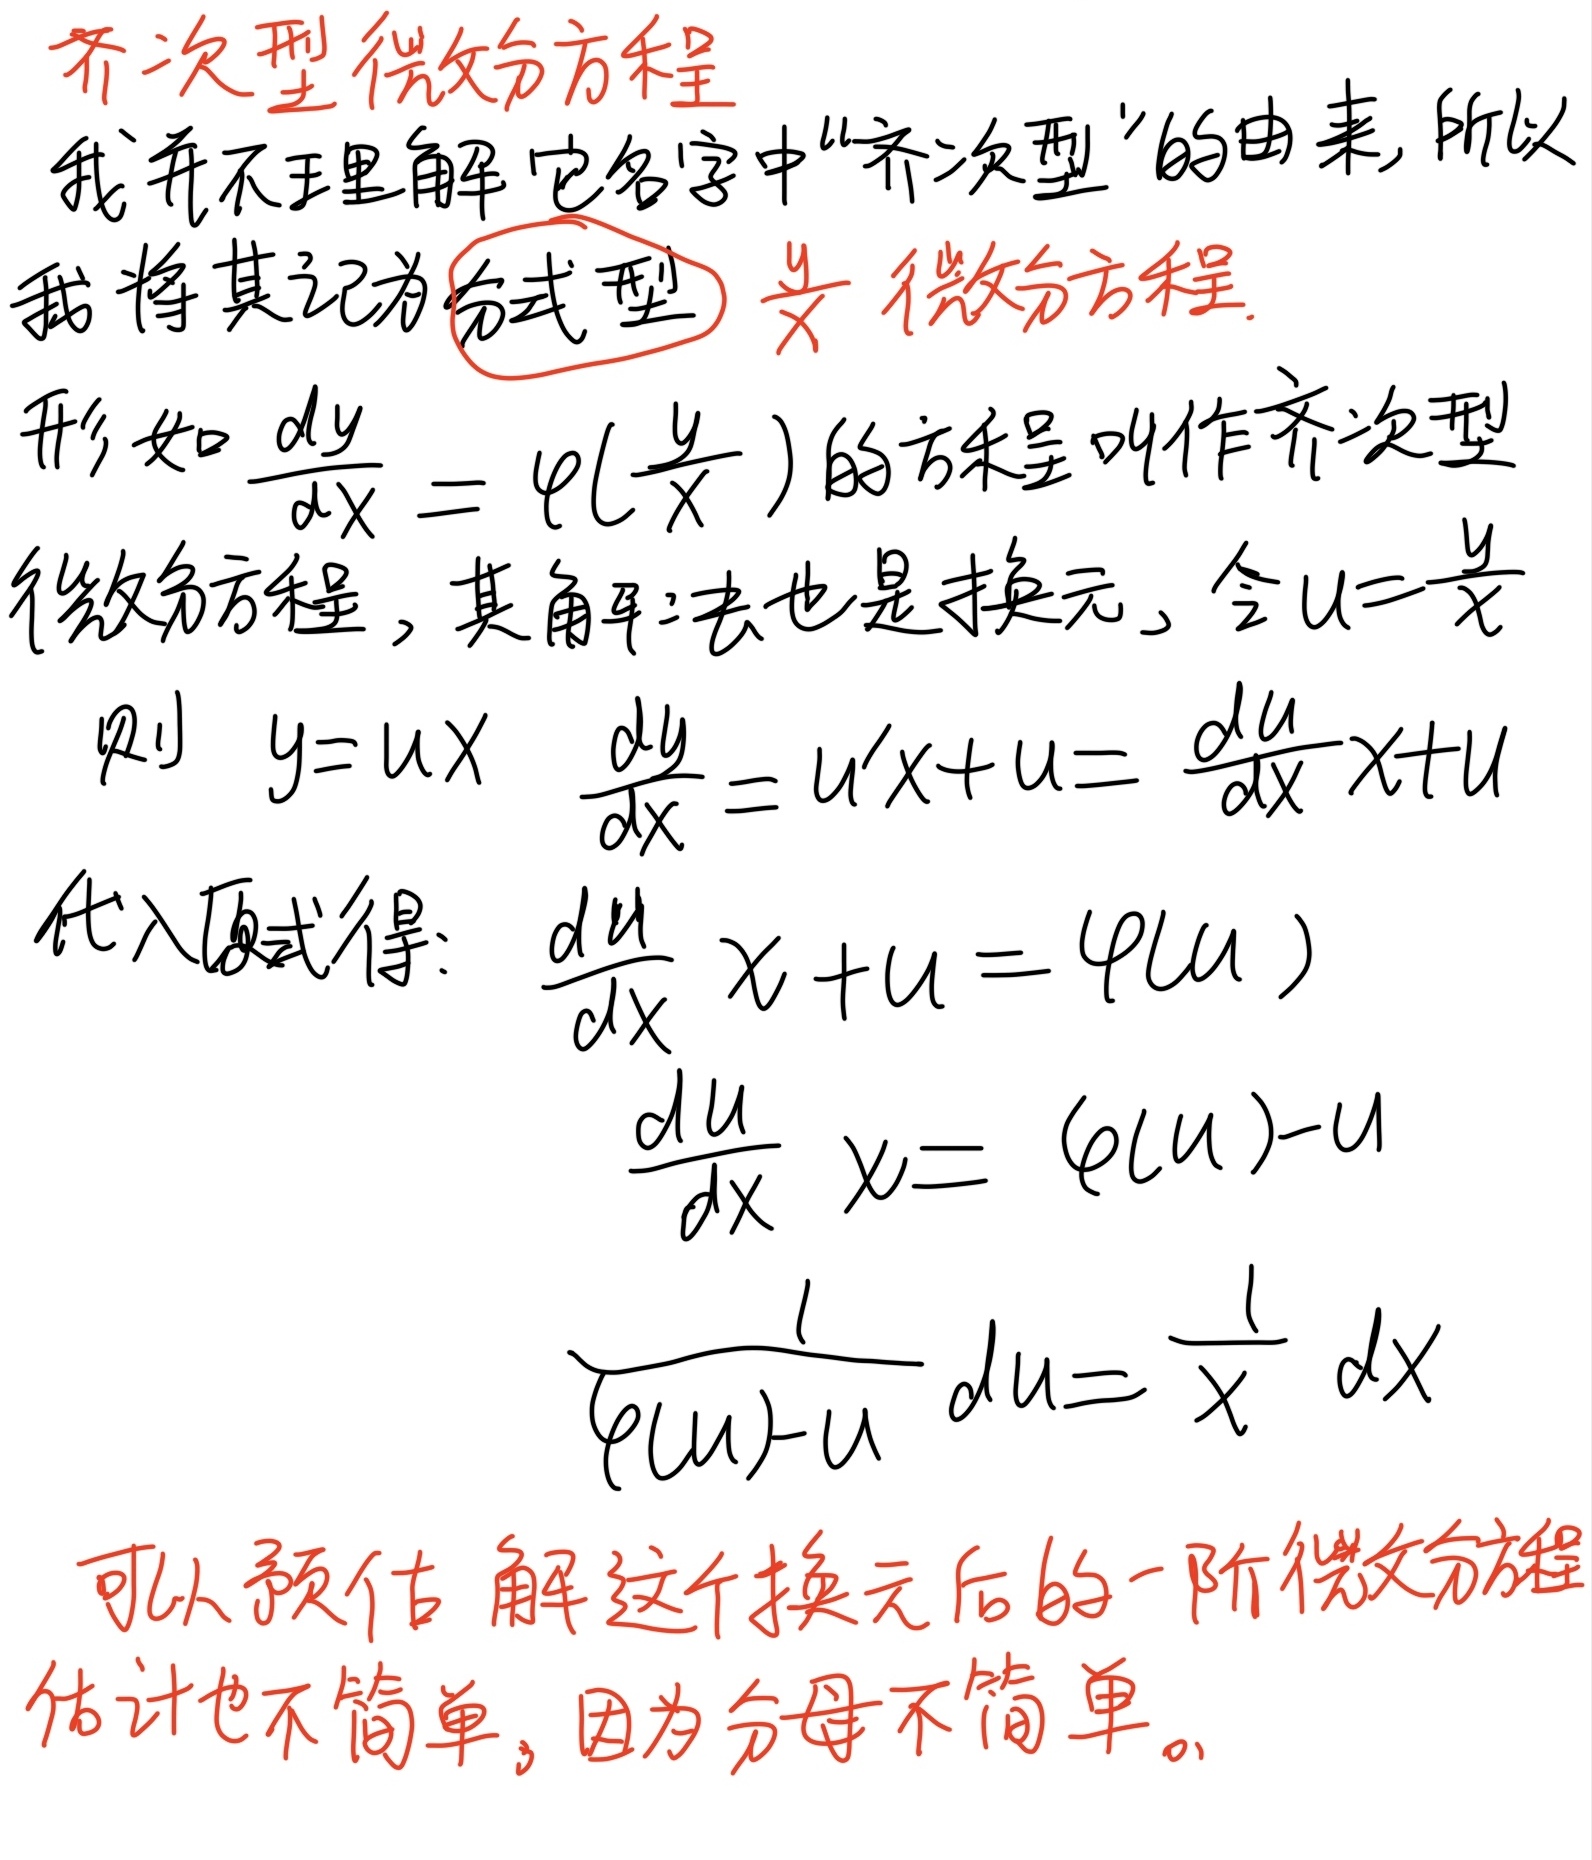 齐次型微分方程
我并不理解它名字中“齐次型”的由来,所以
我将其记为分式型 y/x 微分方程.
形如 dy/dx = φ(y/x)的方程叫作齐次型
微分方程,其解法也是换元,令u=y/x
则 y=ux dy/dx=u′x+u=du/dx x+u
代入原式得: du/dx x+u=φ(u)
du/dx x= φ(u)-u
1/(φ(u)-u) du= 1/x dx
可以预估 解这个换元后的一阶微分方程
估计也不简单,因为分母不简单。